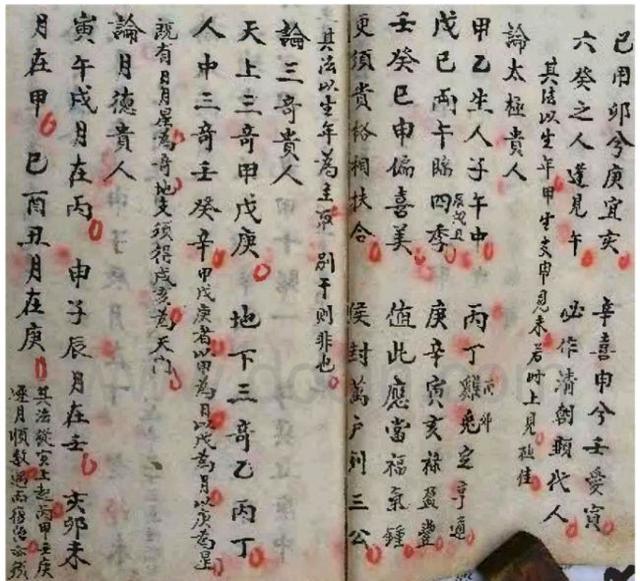 己用卯兮庚宜亥 辛喜申兮壬愛寅
六癸之人逢見午 必作清朝顯代人
其法以生年甲生支申見未若时上見極佳
論太極貴人
甲乙生人子午中 丙丁雞兎定亨通 酉卯
戊己兩午臨四季 辰戌丑 庚辛寅亥祿盈豐
壬癸巳申偏喜美 值此應當福氣鍾
更須貴格相扶合 侯封萬户列三公
其法以生年為主 别干則非也
論三奇貴人
天上三奇甲戊庚 地下三奇乙丙丁
人中三奇壬癸辛 甲戊庚者以甲為日以戊為月以庚為星
既有日月星為奇地支須得戌亥為天门
論月德貴人
寅午戌月在丙 申子辰月在壬 亥卯未
月在甲 巳酉丑月在庚 其法從寅上起丙甲壬庚
逐月順數